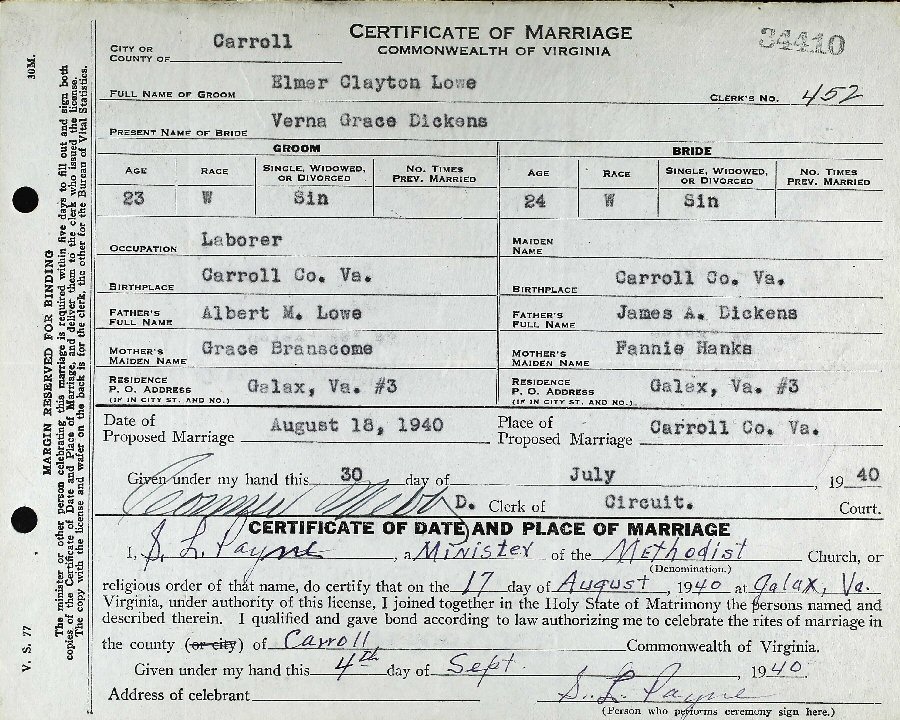 CERTIFICATE OF MARRIAGE
COMMONWEALTH OF VIRGINIA
34410
CITY OR COUNTY OF Carroll
FULL NAME OF GROOM Elmer Clayton Lowe
CLERK'S NO. 452
PRESENT NAME OF BRIDE Verna Grace Dickens
GROOM BRIDE
AGE RACE SINGLE, WIDOWED, OR DIVORCED NO. TIMES PREV. MARRIED AGE RACE SINGLE, WIDOWED, OR DIVORCED NO. TIMES PREV. MARRIED
23 W Sin 24 W Sin
OCCUPATION Laborer MAIDEN NAME
BIRTHPLACE Carroll Co. Va. BIRTHPLACE Carroll Co. Va.
FATHER'S FULL NAME Albert M. Lowe FATHER'S FULL NAME James A. Dickens
MOTHER'S MAIDEN NAME Grace Branscome MOTHER'S MAIDEN NAME Fannie Hanks
RESIDENCE P. O. ADDRESS (IF IN CITY ST. AND NO.) Galax, Va. #3 RESIDENCE P. O. ADDRESS (IF IN CITY ST. AND NO.) Galax, Va. #3
Date of Proposed Marriage August 18, 1940 Place of Proposed Marriage Carroll Co. Va.
Given under my hand this 30 day of July 1940
D. Clerk of Circuit. Court.
CERTIFICATE OF DATE AND PLACE OF MARRIAGE
I, S. L. Payne, a Minister of the Methodist Church, or
(Denomination.)
religious order of that name, do certify that on the 17 day of August, 1940 at Galax, Va.
Virginia, under authority of this license, I joined together in the Holy State of Matrimony the persons named and
described therein. I qualified and gave bond according to law authorizing me to celebrate the rites of marriage in
the county (or city) of Carroll Commonwealth of Virginia.
Given under my hand this 4th day of Sept., 1940.
Address of celebrant S. L. Payne
(Person who performs ceremony sign here.)
30M.
MARGIN RESERVED FOR BINDING
The minister or other person celebrating this marriage is required within five days to fill out and sign both
copies of the Certificate of Date and Place of Marriage, and deliver them to the clerk who issued the license.
The copy with the license and wafer on the back is for the clerk, the other for the Bureau of Vital Statistics.
V. S. 77